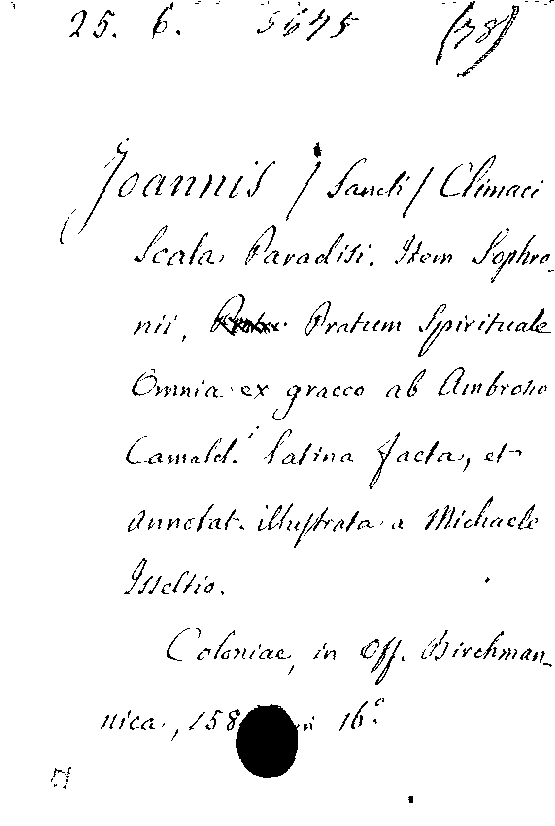 25. 6. 5675 (78)
Joannis / Sancti / Climaci
Scala Paradisi. Item Sophro-
nii, Pratum Spirituale
Omnia ex graeco ab Ambrosio
Camald. latina facta, et
annotat. illustrata a Michaele
Isseltio.
Coloniae, in Off. Birchman-
nica, 158 in 16°